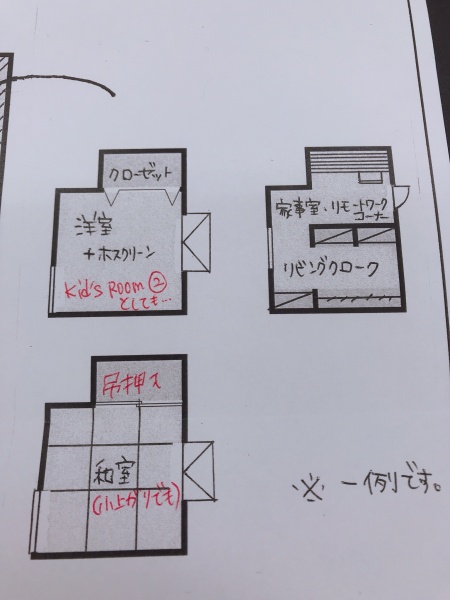 クローゼット
洋室
+ホスクリーン
Kid's Room②
としても…
家事室・リモートワーク
コーナー
リビングクローク
吊押入
和室
(小上がりでも)
※一例です。